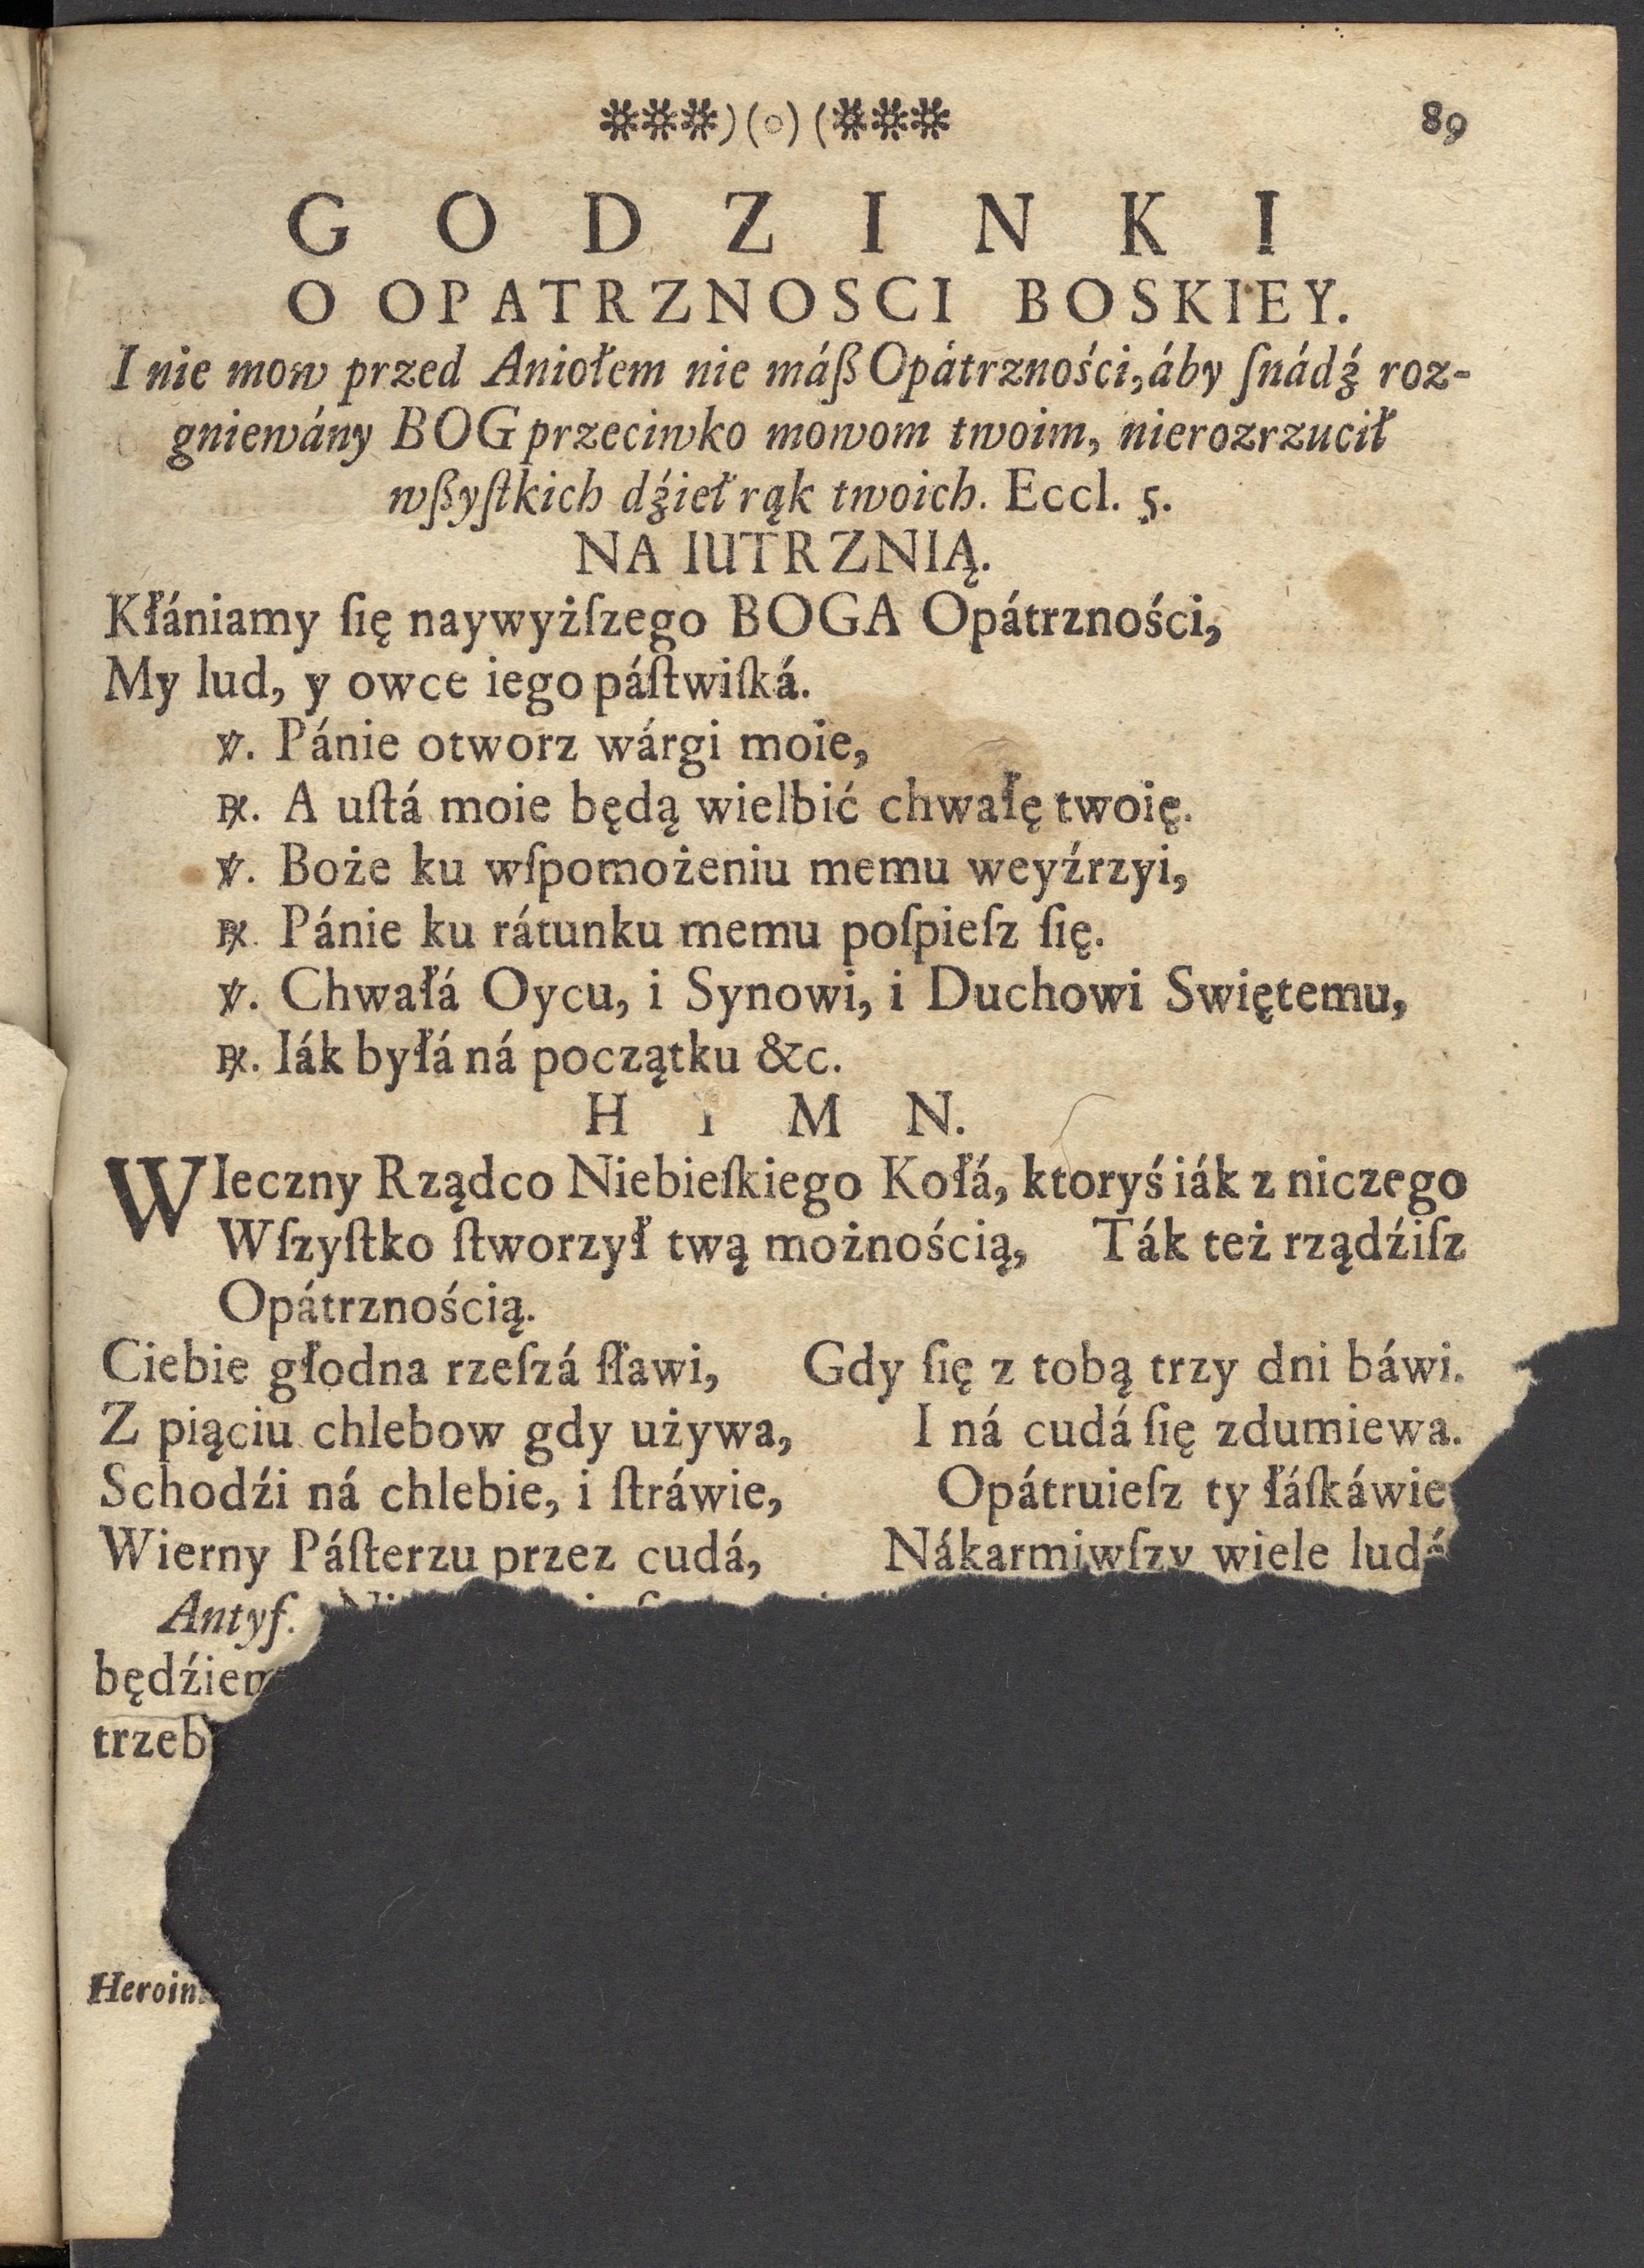 ***)(o)(*** 89
GODZINKI
O OPATRZNOSCI BOSKIEY.
I nie mow przed Aniołem nie máß Opátrzności, áby ſnádź roz-
gniewány BOG przeciwko mowom twoim, nierozrzucił
wßyſtkich dźieł rąk twoich. Eccl. 5.
NA IUTRZNIĄ.
Kłániamy ſię naywyżſzego BOGA Opátrzności,
My lud, y owce iego páſtwiſká.
℣. Pánie otworz wárgi moie,
℟. A uſtá moie będą wielbić chwałę twoię.
℣. Boże ku wſpomożeniu memu weyźrzyi,
℟. Pánie ku rátunku memu poſpieſz ſię.
℣. Chwałá Oycu, i Synowi, i Duchowi Swiętemu,
℟. Iák byłá ná początku &c.
HIMN.
WIeczny Rządco Niebieſkiego Kołá, ktoryś iák z niczego
Wſzyſtko ſtworzył twą możnością, Ták też rządźiſz
Opátrznością.
Ciebie głodna rzeſzá ſławi, Gdy ſię z tobą trzy dni báwi.
Z piąciu chlebow gdy używa, I ná cudá ſię zdumiewa.
Schodźi ná chlebie, i ſtráwie, Opátruieſz ty łáſkáwie
Wierny Páſterzu przez cudá, Nákarmiwſzy wiele ludá
Antyf.
będźiem
trzeb
Heroin